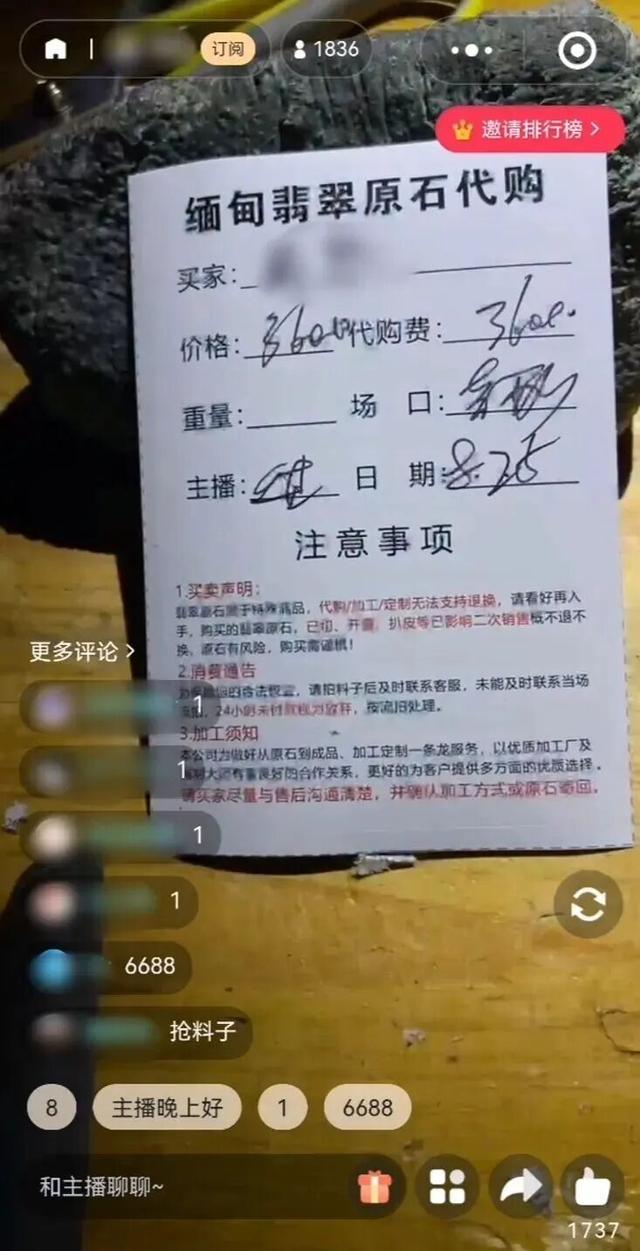 订阅
1836
邀请排行榜 >
缅甸翡翠原石代购
买家:
价格: 3600 代购费: 3600.
重量: 场 口:
主播: 日 期: 8.25
注意事项
1.买卖声明:
翡翠原石属于特殊商品，代购/加工/定制无法支持退换，请看好再入
手，购买的翡翠原石，已切、开窗、扒皮等已影响二次销售概不退不
换。原石有风险，购买需谨慎！
2.消费通告
请拍料子后及时联系客服，未能及时联系当场
24小时未付款视为放弃，按流拍处理。
3.加工须知
本公司力做好从原石到成品、加工定制一条龙服务，以优质加工厂及
有着良好的合作关系，更好的为客户提供多方面的优质选择。
请买家尽量与售后沟通清楚，并确认加工方式或原石寄回。
更多评论 >
1
1
1
1
6688
抢料子
8
主播晚上好
1
6688
和主播聊聊~
1737